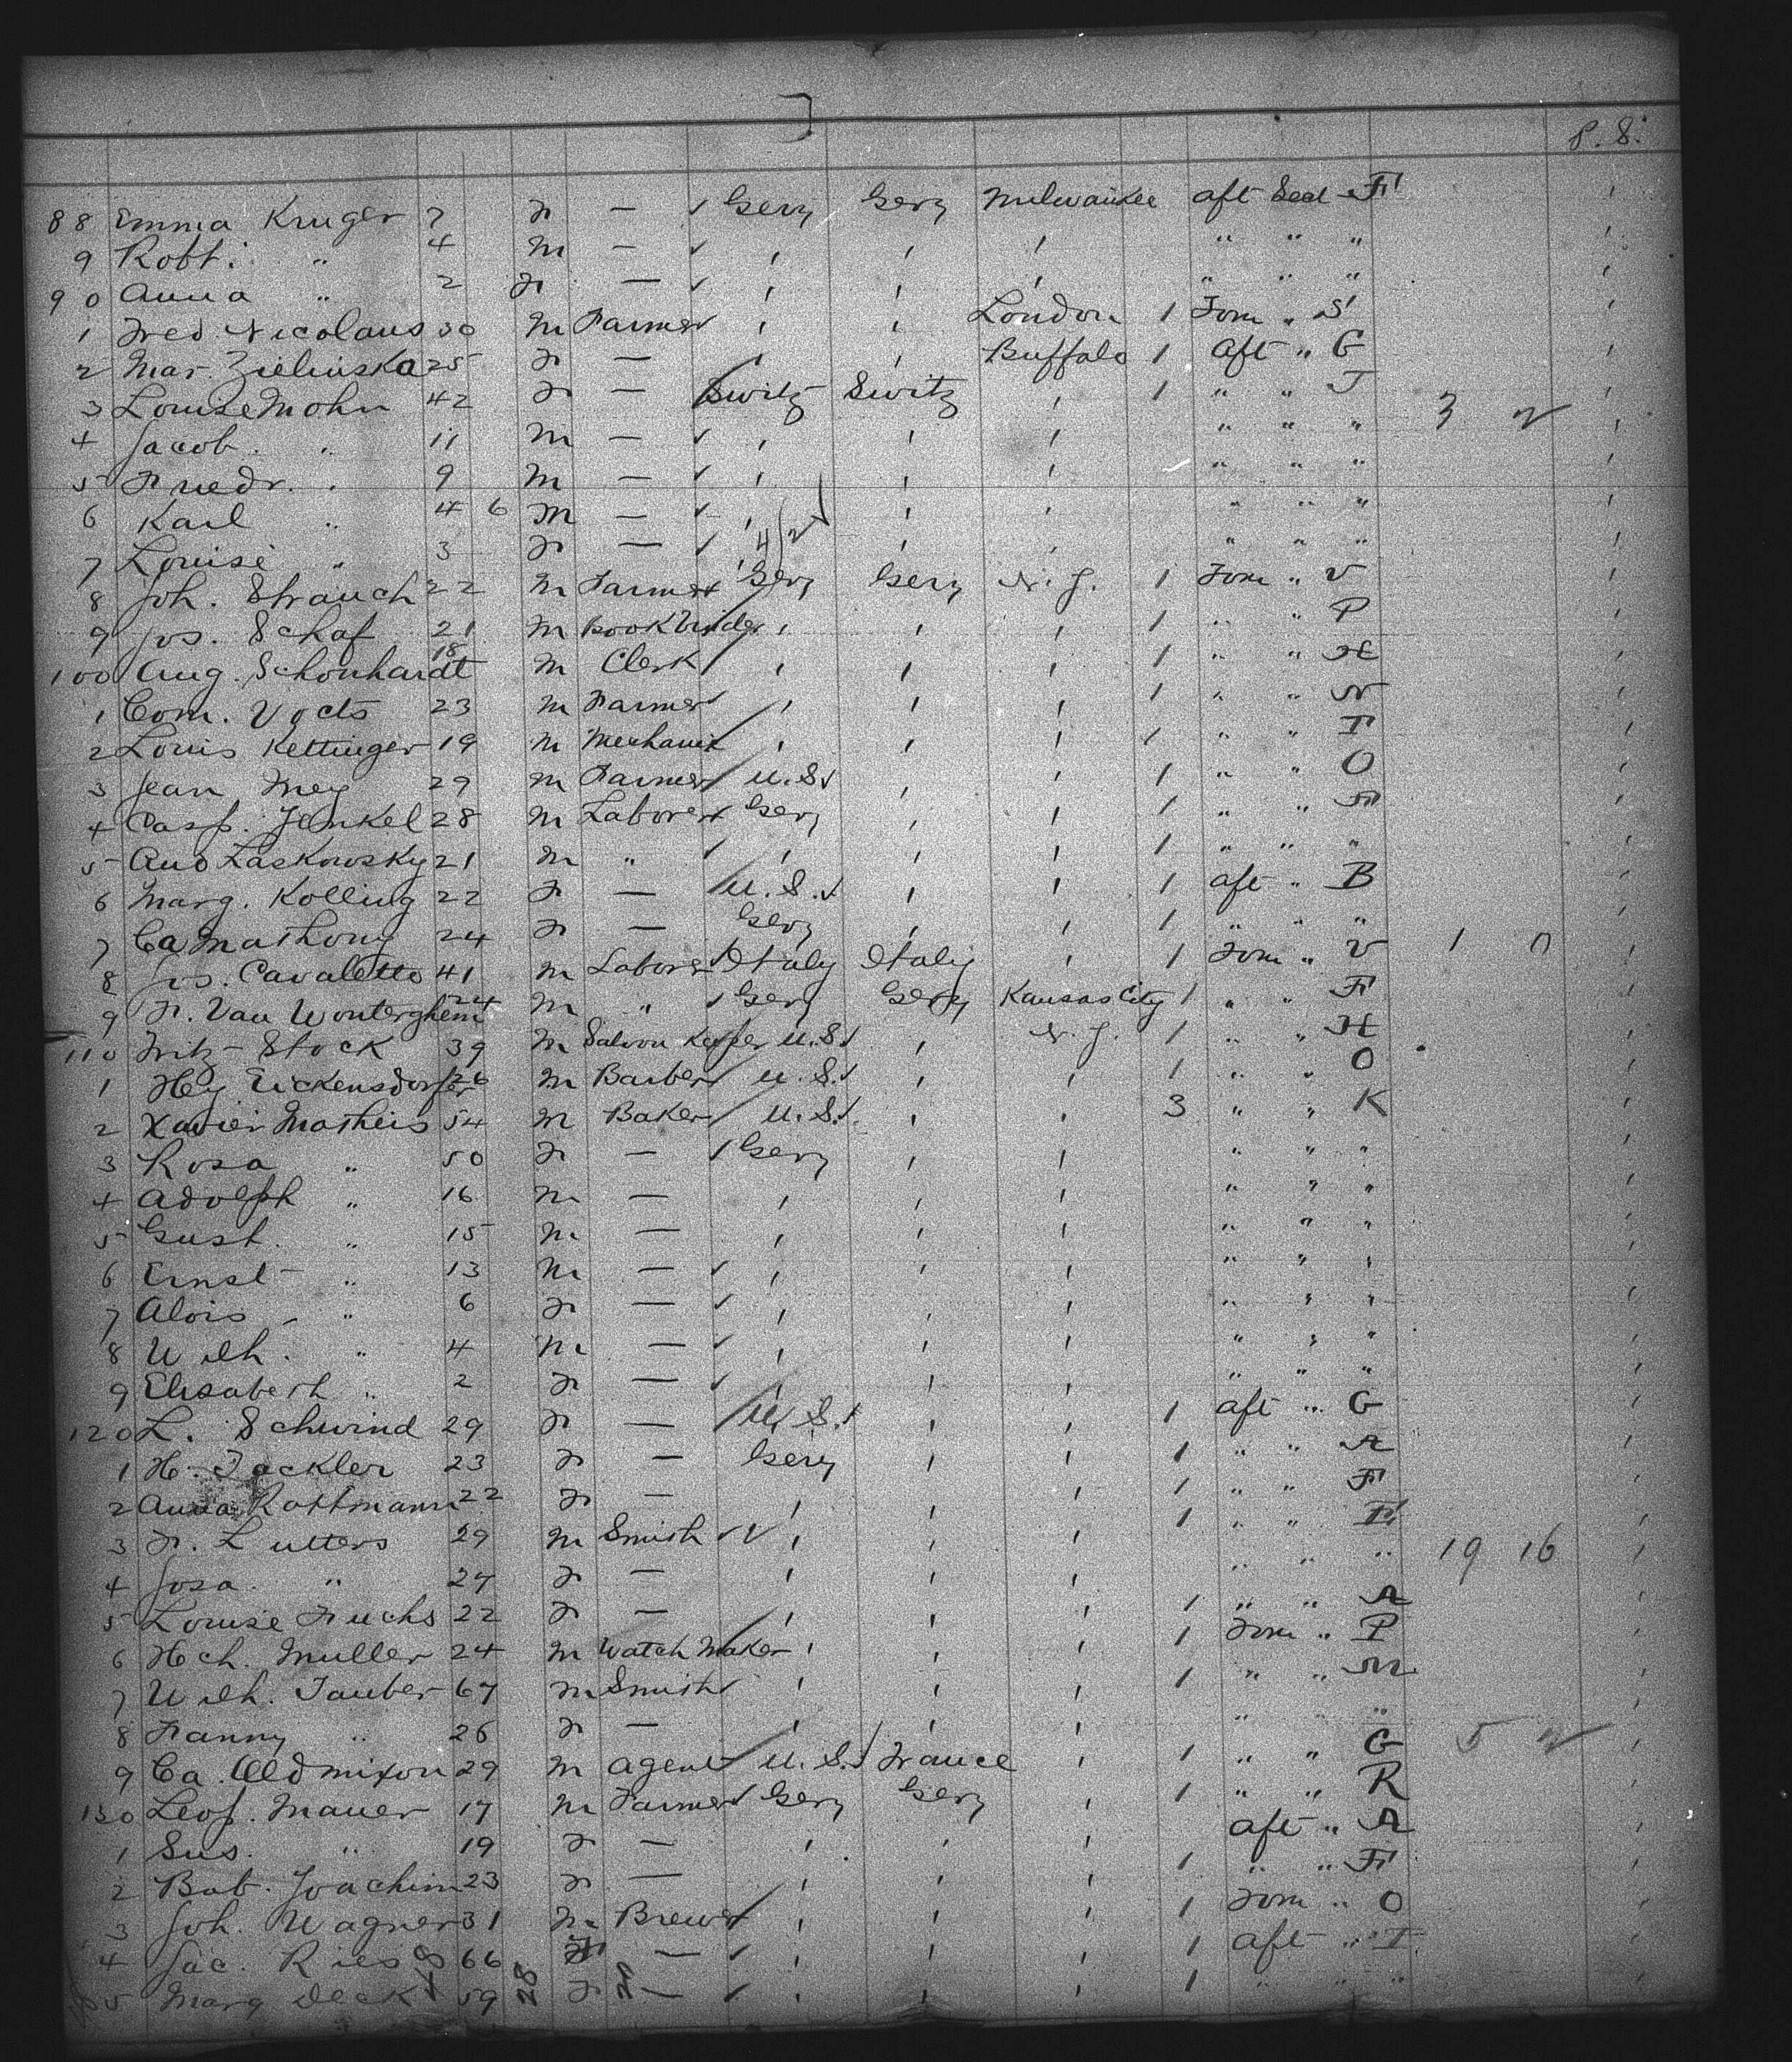 P. 8.
88 Emma Kruger 7 F — ✓ Gery Gery Milwaukee aft Sect F '
9 Robt. " 4 M — ✓ ' ' ' " " " '
90 Anna " 2 F — ✓ ' ' ' " " " '
1 Fred Nicolaus 30 M Farmer ' ' London 1 Forw " S '
2 Mar. Zielinska 25 F — ' ' Buffalo 1 Aft " G '
3 Louise Mohn 42 F — Switz Switz ' 1 " " T 3 2 '
4 Jacob " 11 M — ✓ ' ' ' " " " '
5 Friedr. " 9 M — ✓ ' ' ' " " " '
6 Karl " 4 6 M — ✓ ' ' ' " " " '
7 Louise " 3 F — ✓ ' ' ' " " " '
8 Joh. Strauch 22 M Farmer Gery Gery N. J. 1 Forw " V '
9 Jos. Schaf 21 M Bookbinder ' ' ' 1 " " P '
100 Aug. Schonhardt 18 M Clerk ' ' ' 1 " " H '
1 Com. Vocts 23 M Farmer ' ' ' 1 " " N '
2 Louis Kettinger 19 M Mechanic ' ' ' 1 " " F '
3 Jean Mey 29 M Farmer U.S. ' ' 1 " " O '
4 Casp. Jenkel 28 M Laborer Gery ' ' 1 " " F '
5 And Laskowsky 21 M " ✓ ' ' ' 1 " " " '
6 Marg. Kolling 22 F — U.S. ' ' 1 aft " B '
7 Ca Mathony 24 F — Gery ' ' 1 " " " 1 0 '
8 Jos. Cavaletto 41 M Laborer Italy Italy ' 1 Forw " V '
9 F. Van Wonterghem 24 M " ✓ Gery Gery Kansas City 1 " " F '
110 Fritz Stock 39 M Saloon Keeper U.S. ' N. J. 1 " " H '
1 Hey Eickensdorfer 26 M Barber U.S. ' ' 1 " " O '
2 Xavier Matheis 54 M Baker U.S. ' ' 3 " " K '
3 Rosa " 50 F — ✓ Gery ' ' " " " '
4 Adolph " 16 M — ' ' ' " " " '
5 Gust. " 15 M — ' ' ' " " " '
6 Ernst " 13 M — ✓ ' ' ' " " " '
7 Alois " 6 F — ✓ ' ' ' " " " '
8 Wilh. " 4 M — ✓ ' ' ' " " " '
9 Elisabeth " 2 F — ✓ ' ' ' " " " '
120 L. Schwind 29 F — U.S. ' ' 1 aft " G '
1 H. Jackler 23 F — Gery ' ' 1 " " A '
2 Anna Rothmann 22 F — ' ' ' 1 " " F '
3 F. Lutters 29 M Smith ✓ ' ' ' 1 " " E 19 16 '
4 Josa. " 24 F — ' ' ' " " " '
5 Louise Fuchs 22 F — ' ' ' 1 " " A '
6 Hch. Muller 24 M Watch Maker ' ' ' 1 Forw " P '
7 Wilh. Tauber 67 M Smith ' ' ' 1 " " M '
8 Fanny " 26 F — ' ' ' " " " 5 2 '
9 Ca. Oldmixon 29 M Agent U.S. France ' 1 " " G '
130 Leop. Mauer 17 M Farmer Gery Gery ' 1 " " R '
1 Sus. " 19 F — ' ' ' aft " A '
2 Bab. Joachim 23 F — ' ' ' 1 " " F '
3 Joh. Wagner 31 M Brewer ' ' ' 1 Forw " O '
4 Jac. Ries 66 — ✓ ' ' ' 1 aft " I '
5 Marg Deck 59 F — ✓ ' ' ' 1 " " " '
28